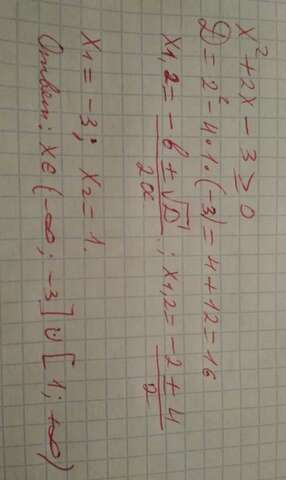 x² + 2x - 3 ≥ 0
D = 2² - 4·1·(-3) = 4 + 12 = 16
x₁,₂ = (-b ± √D)/2a ; x₁,₂ = (-2 ± 4)/2
x₁ = -3; x₂ = 1.
Ответ: x ∈ (-∞; -3] ∪ [1; +∞)